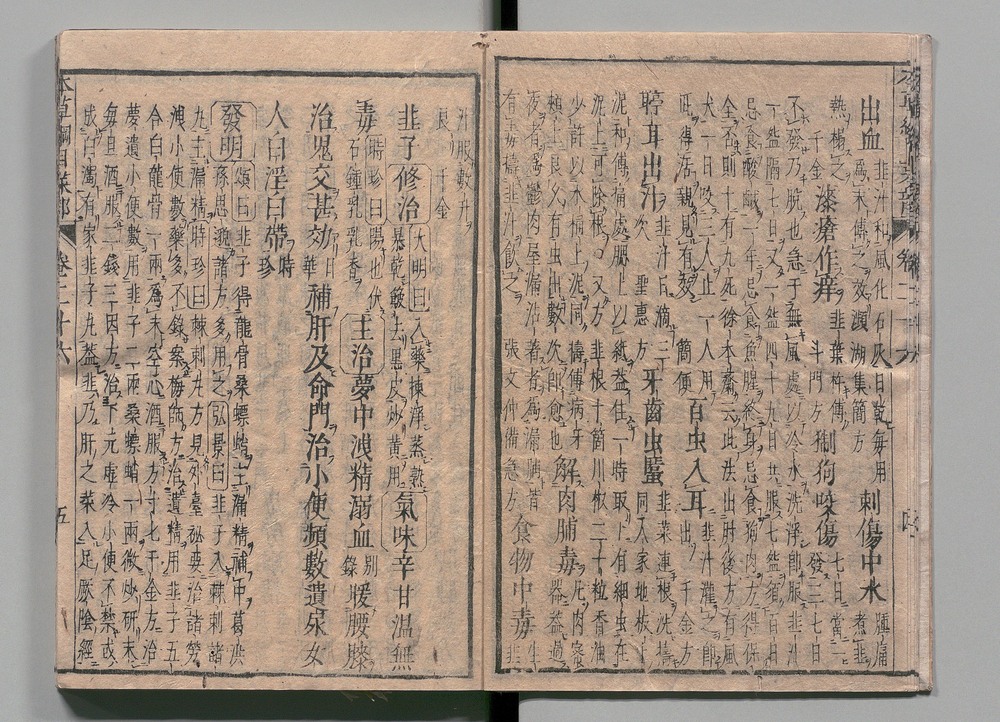 出血 韭汁和風化石灰日乾每用 刺傷中水 腫痛
熱搨之 爲末傅之效 瀕湖集簡方 煮韭
千金 漆瘡作痒 韭葉杵傅 斗門方 猘狗咬傷 七日一發三七日
不發乃脫也急于無風處以冷水洗淨即服韭汁
一盌隔七日又一盌四十九日共服七盌須百日
忌食酸鹹一年忌食魚腥終身忌食狗肉方得保
全否則十有九死徐本齋云此法出肘後方有風
犬一日咬三人止一人用
此得活親見有效 簡便 百虫入耳 韭汁灌之即出 千金方
聤耳出汁 韭汁日滴三次 聖惠方 牙齒虫䘌 韭菜連根洗擣
同人家地板
泥和傅痛處腮上以紙蓋住一時取下有細虫在
泥上可除根 又方韭根十箇川椒二十粒香油
少許以水桶上泥同擣傅病牙
頰上良久有虫出數次即愈也 解肉脯毒 凡肉密器蓋過
夜者爲鬱肉屋漏沾著者爲漏脯皆
有毒擣韭汁飲之 張文仲備急方 食物中毒 生韭
汁服數升
良 千金
韭子 修治 大明曰入藥揀淨蒸熟
暴乾簸去黑皮炒黃用 氣味 辛甘温無
毒 時珍曰陽也伏
石鍾乳乳香 主治 夢中洩精溺血 別錄 暖腰膝
治鬼交甚効 日華 補肝及命門治小便頻數遺尿女
人白淫白帶 時珍
發明 頌曰韭子得龍骨桑螵蛸主漏精補中葛洪
孫思邈諸方多用之 弘景曰韭子入棘刺諸
丸主漏精 時珍曰棘刺丸方見外臺祕要治諸勞
洩小便數藥多不錄案梅師方治遺精用韭子五
合白龍骨一兩爲末空心酒服方寸七千金方治
夢遺小便數用韭子二兩桑螵蛸一兩微炒研末
每旦酒服二錢三因方治下元虛冷小便不禁或
成白濁有家韭子丸蓋韭乃肝之菜入足厥陰經
五